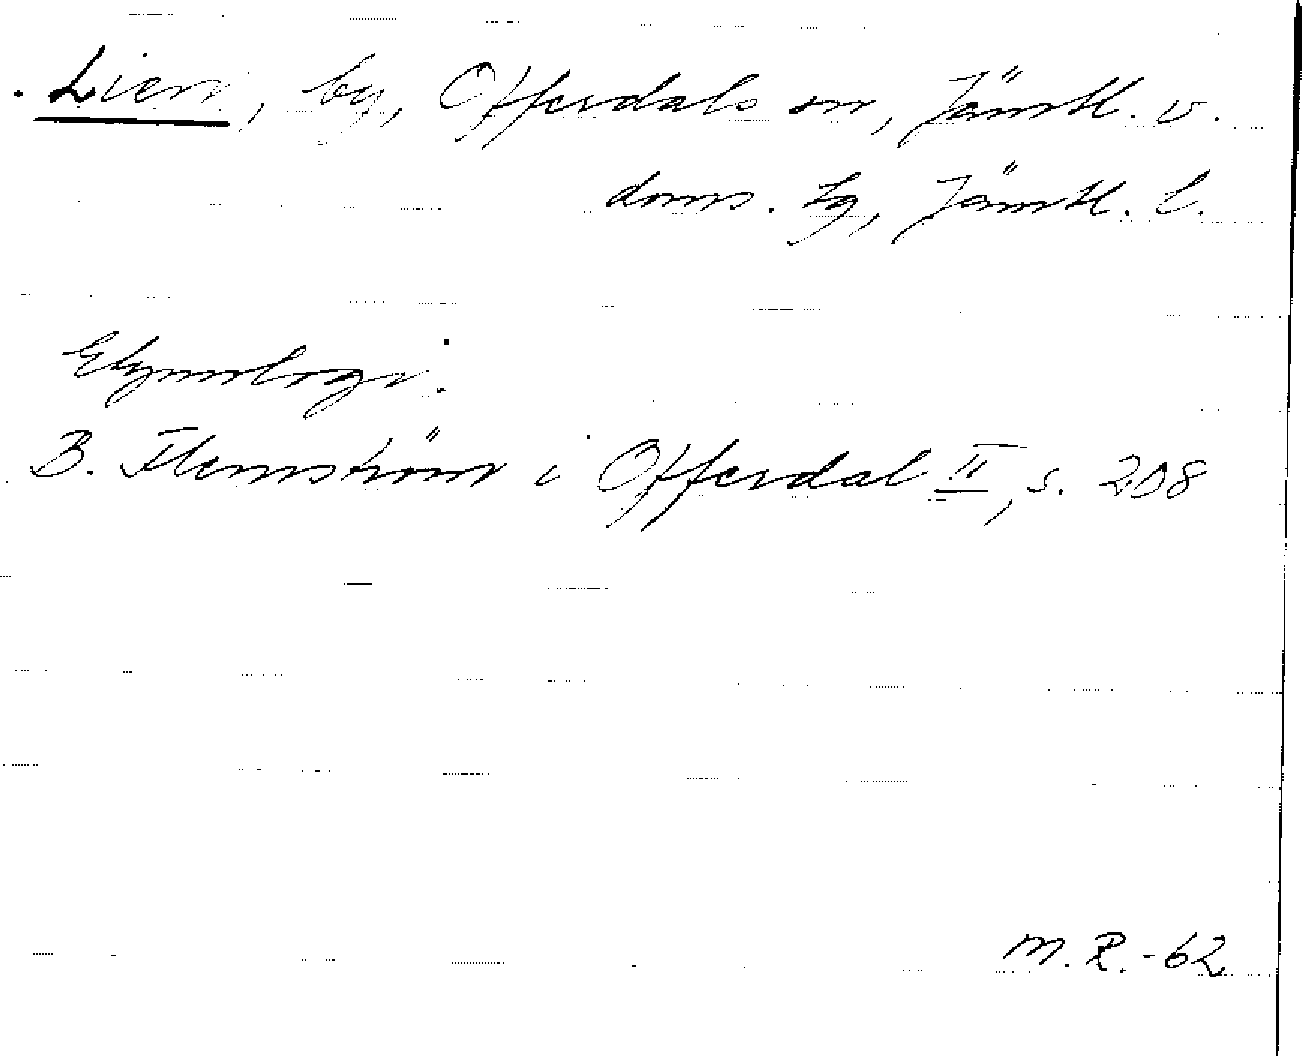 Lien, by, Offerdals sn, Jämtl. v.
doms. hg, Jämtl. l.
Etymologi:
B. Flemström i Offerdal II, s. 208
M.R.-62